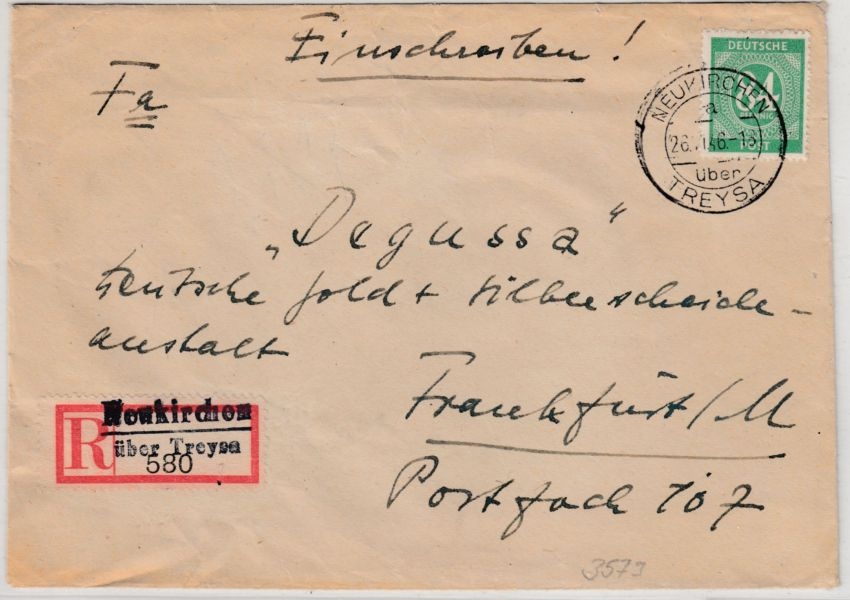 Einschreiben!
Fa
DEUTSCHE
84
PFENNIG
POST
NEUKIRCHEN
a
26. 46.-18
über
TREYSA
„Degussa“
Deutsche Gold + Silberscheide-
anstalt
Frankfurt/M
Postfach 107
R
Neukirchen
über Treysa
580
3579